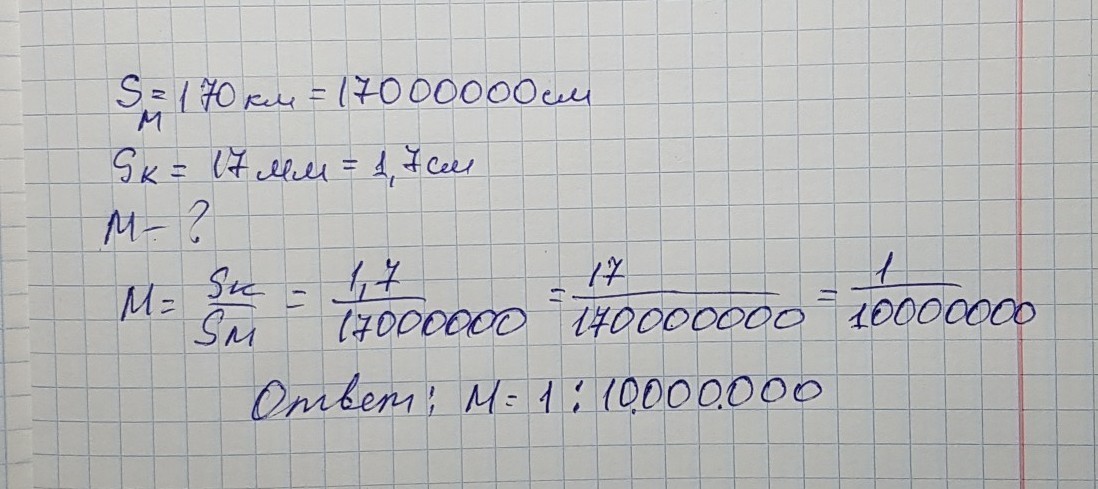 Sм = 170 км = 17000000 см
Sк = 17 мм = 1,7 см
М - ?
М = Sк/Sм = 1,7/17000000 = 17/170000000 = 1/10000000
Ответ: М = 1 : 10.000.000